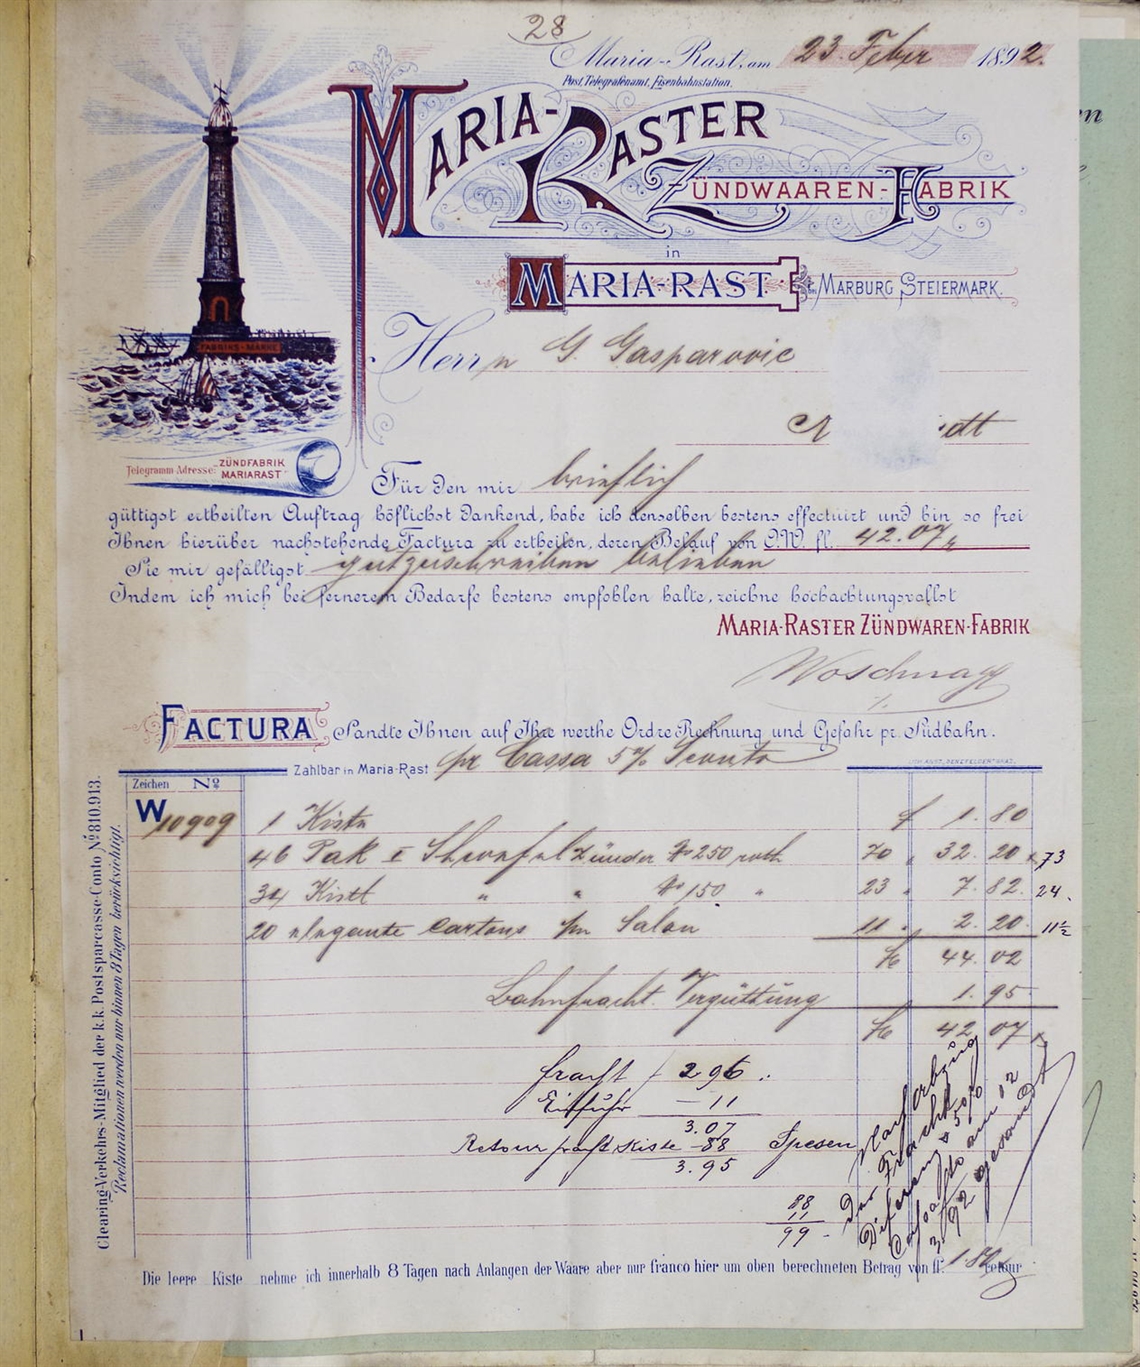 28
Maria-Rast, am 23. Feber 1892.
Post, Telegrafenamt, Eisenbahnstation.
MARIA-RASTER
ZÜNDWAAREN-FABRIK
in
MARIA-RAST b. MARBURG STEIERMARK.
FABRIKS-MARKE
Herrn G. Gasparovic
dt
Telegramm-Adresse: ZÜNDFABRIK
MARIARAST
Für den mir brieflich
güttigst ertheilten Auftrag höflichst dankend, habe ich denselben bestens effectuirt und bin so frei
Ihnen hierüber nachstehende Factura zu ertheilen, deren Belauf von Ö.W. fl. 42.07
Sie mir gefälligst gutzuschreiben belieben
Indem ich mich bei fernerem Bedarfe bestens empfohlen halte, zeichne hochachtungsvollst
MARIA-RASTER ZÜNDWAREN-FABRIK
Woschnagg
FACTURA Sandte Ihnen auf Ihre werthe Ordre Rechnung und Gefahr pr. Südbahn.
Zahlbar in Maria-Rast pr Cassa 5% Sconto
Zeichen No
W 10909 1 Kiste f 1. 80
46 Pak I zünder No 250 roth 70 32 20 73
34 Kistl " " No 150 " 23 7. 82. 24.
20 elegante Cartons Salon 11 2. 20. 11½
44. 02
Bahnfracht Vergüttung 1. 95
42 07
fracht 2 96
11
3.07
Retour fracht Kiste -88 Spesen
3.95
88
11
99
Die leere Kiste nehme ich innerhalb 8 Tagen nach Anlangen der Waare aber nur franco hier um oben berechneten Betrag von fl. 1.80 retour
Clearing-Verkehrs-Mitglied der k.k. Postsparcasse-Conto No 810.913.
Reclamationen werden nur binnen 8 Tagen berücksichtigt.